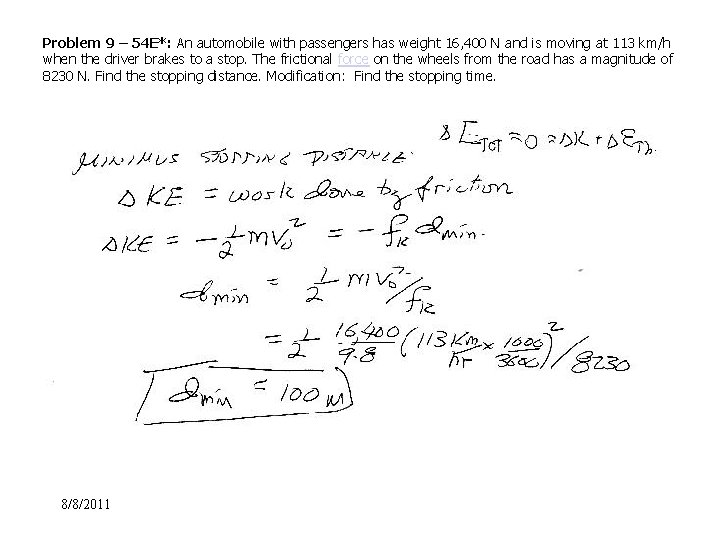 Problem 9 – 54E*: An automobile with passengers has weight 16,400 N and is moving at 113 km/h
when the driver brakes to a stop. The frictional force on the wheels from the road has a magnitude of
8230 N. Find the stopping distance. Modification: Find the stopping time.
Δ E_TOT = 0 = ΔK + ΔE_Th.
MINIMUS STOPPING DISTANCE.
Δ KE = work done by friction
ΔKE = -1/2 mv₀² = -f_k d_min.
d_min = 1/2 mv₀²/f_k
= 1/2 16,400/9.8 (113 Km/hr x 1000/3600)²/8230
d_min = 100 M
8/8/2011